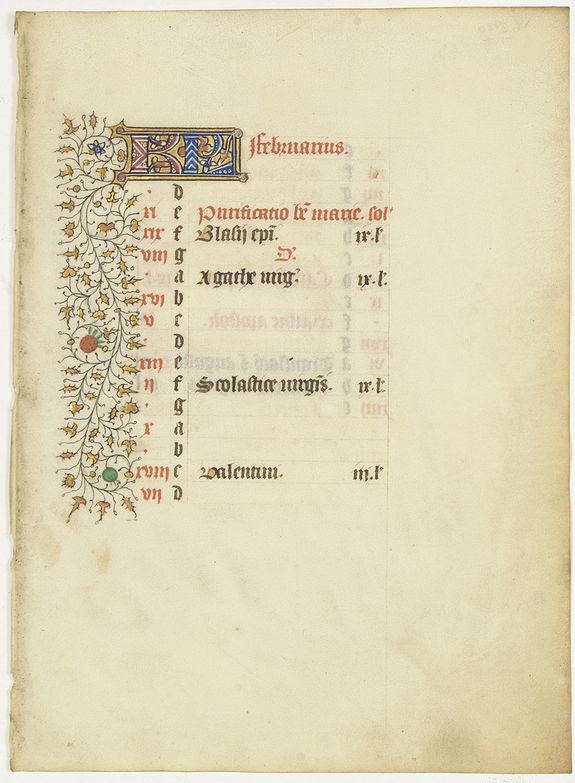 KL ffebruarius.
. d
xi e Purificatio bē marie. sol'
xix f Blasij epi. ix.l'
viij g D'.
. a Agathe uirg'. ix.l'
xvi b
v c
. d
xiij e
ij f Scolastice uirgis. ix.l'
. g
x a
. b
xviij c Valentini. iij.l'
vij d